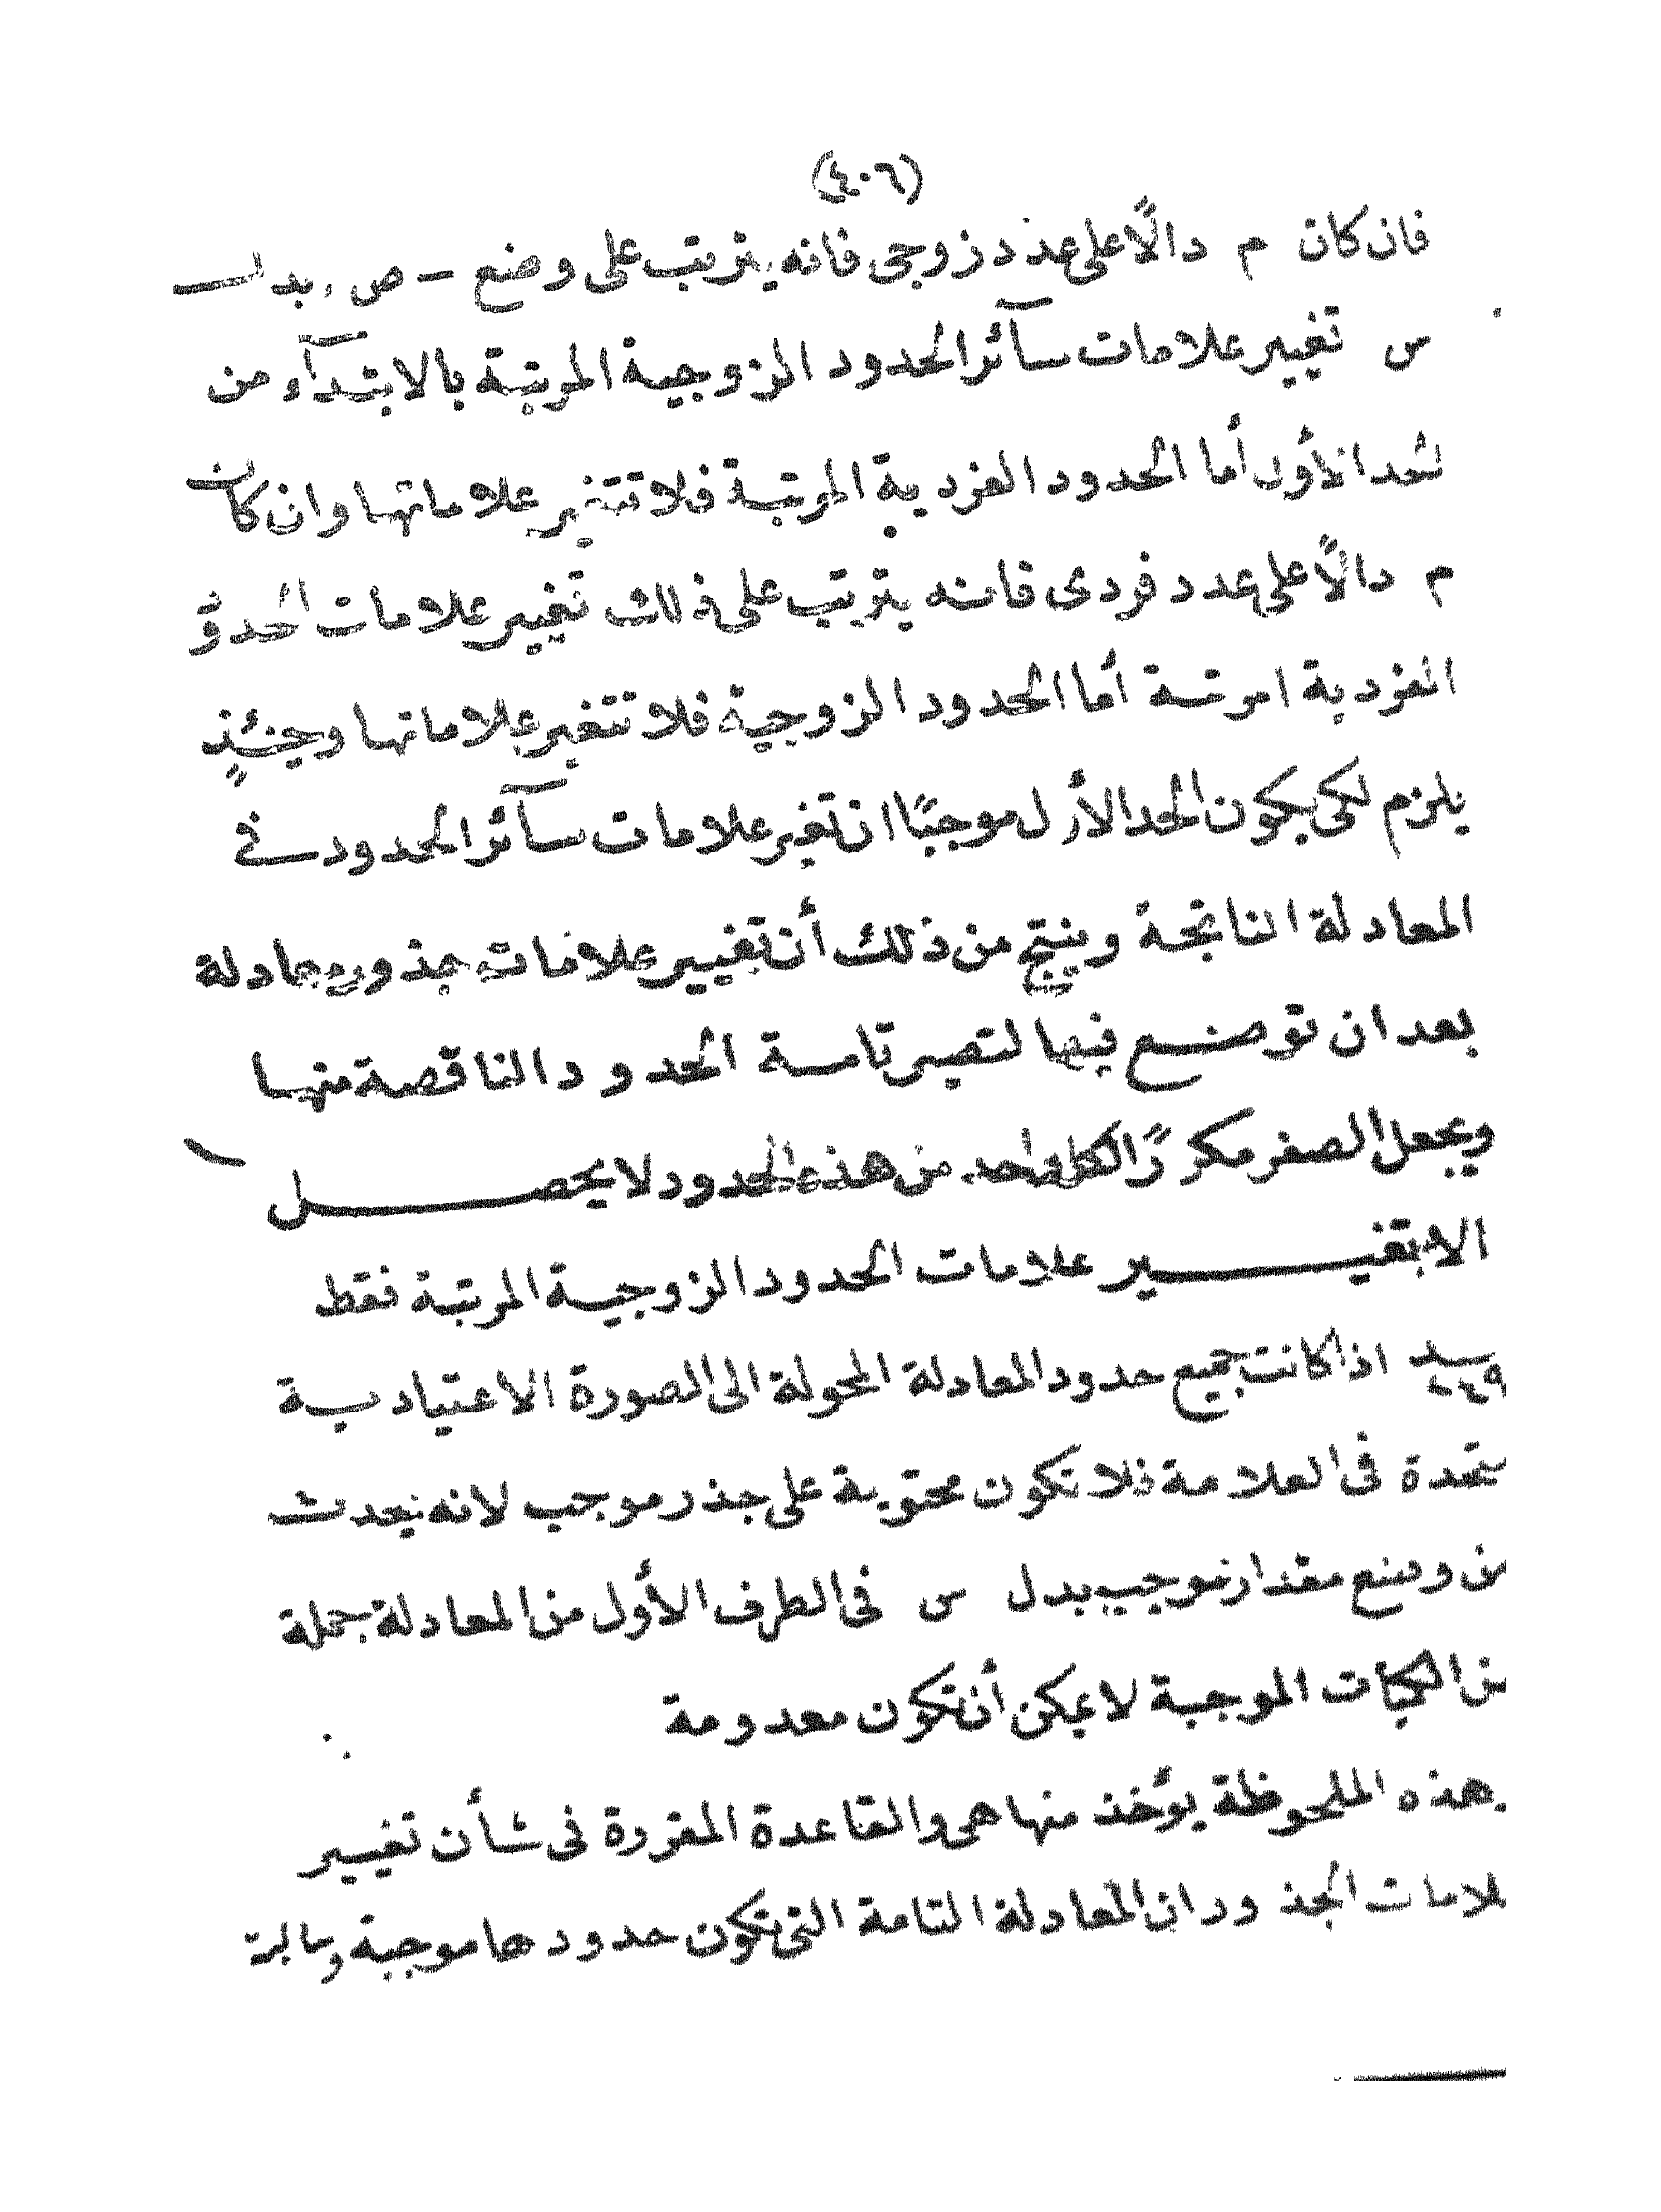 (٤٠٦)
فان كان م دالًا على عدد زوجى فانه يترتب على وضع − ص بدل
س تغيير علامات سآئر الحدود الزوجية المرتبة بالابتدآء من
لحد الأول أما الحدود الفردية المرتبة فلا تتغير علاماتها وان كان
م دالًا على عدد فردى فانه يترتب على ذلك تغيير علامات الحدود
الفردية المرتبة أما الحدود الزوجية فلا تتغير علاماتها وحينئذٍ
يلزم لكى يكون الحد الأول موجبًا ان تغير علامات سآئر الحدود فى
المعادلة الناتجة وينتج من ذلك أن تغيير علامات جذور معادلة
بعد ان توضع فيها لتصير تامة الحدود الناقصة منها
ويجعل الصفر مكررًا لكل واحد من هذه الحدود لا يحصل
الا بتغيير علامات الحدود الزوجية المرتبة فقط
اذا كانت جميع حدود المعادلة المحولة الى الصورة الاعتيادية
متحدة فى العلامة فلا تكون محتوية على جذر موجب لانه يحدث
من وضع مقدار موجب بدل س فى الطرف الأول من المعادلة جملة
من الكميات الموجبة لا يمكن أن تكون معدومة
وهذه الملحوظة يؤخذ منها هى والقاعدة المقررة فى شأن تغيير
علامات الجذور ان المعادلة التامة التى تكون حدودها موجبة وسالبة